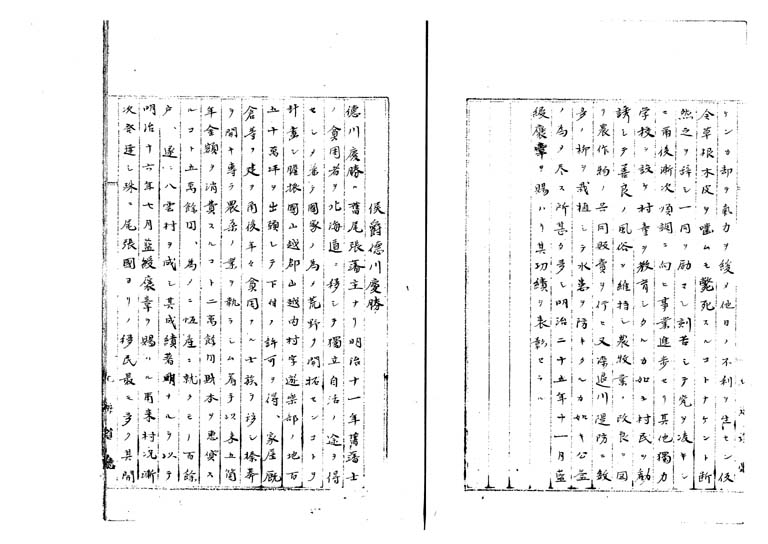 ケンカ却ヲ氣力ヲ緩ノ他日ノ不利ヲ生セン仮
令草根木皮ヲ噛ムモ斃死スルコトナケント断
然之ヲ辞シ一同ヲ励マシ刻苦シテ完ヲ凌キシ
ニ爾後漸次順調ニ向ヒ事業進歩セリ其他獨力
学校ヲ設ケ村童ヲ教育シタルカ如キ村民ヲ勧
誘シテ善良ノ風俗ヲ維持シ農牧業ノ改良ヲ図
リ農作物ノ共同販賣ヲ行ヒ又
川堤防ニ数
多ノ柳ヲ栽植シテ水患ヲ防キタルカ如キ公益
ノ為メ尽ス所甚タ多シ明治二十五年十一月藍
綬褒章ヲ賜ハリ其功績ヲ表彰セラル
侯爵德川慶勝
德川慶勝ハ舊尾張藩主ナリ明治十一年舊藩士
ノ貧困者ヲ北海道ニ移シテ獨立自活ノ途ヲ得
セシメ兼テ國家ノ為メ荒野ヲ開拓センコトヲ
計畫シ膽振國山越郡山越内村字遊楽部ノ地百
五十萬坪ヲ出願シテ下付ノ許可ヲ得、家屋厩
倉等ヲ建ヲ爾後年々貧困ナル士族ヲ移シ榛莽
ヲ開キ専ラ農桑ノ業ヲ執ラシム着手以来五箇
年金額ヲ消費スルコト二萬餘円財本ヲ
貸ス
ルコト五萬餘円、為メニ恒産ニ就クモノ百餘
戸、遂ニ八雲村ヲ成シ其成績著明ナルヲ以テ
明治十六年七月藍綬褒章ヲ賜ハル爾来村況漸
次発達シ殊ニ尾張國ヨリノ移民最モ多ク其開